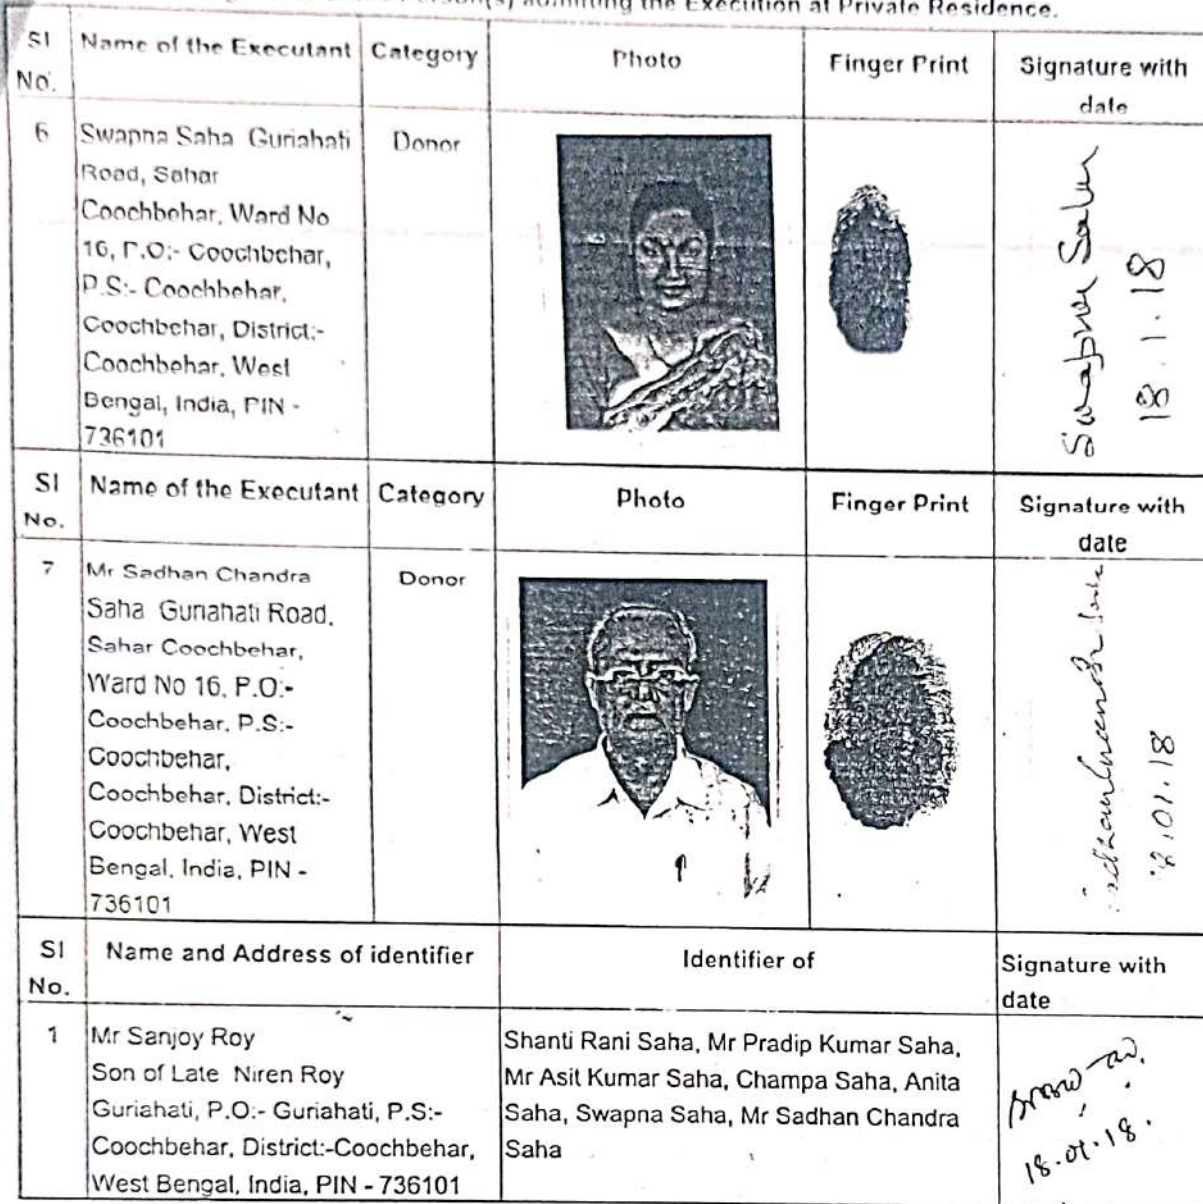 the Execution at Private Residence.
Sl No.
Name of the Executant
Category
Photo
Finger Print
Signature with
date
6
Swapna Saha Guriahati
Road, Sahar
Coochbehar, Ward No
16, P.O:- Coochbehar,
P.S:- Coochbehar,
Coochbehar, District:-
Coochbehar, West
Bengal, India, PIN -
736101
Donor
Swapna Saha
18.1.18
Sl No.
Name of the Executant
Category
Photo
Finger Print
Signature with
date
7
Mr Sadhan Chandra
Saha Guriahati Road,
Sahar Coochbehar,
Ward No 16, P.O:-
Coochbehar, P.S:-
Coochbehar,
Coochbehar, District:-
Coochbehar, West
Bengal, India, PIN -
736101
Donor
Sl No.
Name and Address of identifier
Identifier of
Signature with
date
1
Mr Sanjoy Roy
Son of Late Niren Roy
Guriahati, P.O:- Guriahati, P.S:-
Coochbehar, District:-Coochbehar,
West Bengal, India, PIN - 736101
Shanti Rani Saha, Mr Pradip Kumar Saha,
Mr Asit Kumar Saha, Champa Saha, Anita
Saha, Swapna Saha, Mr Sadhan Chandra
Saha
18.01.18.